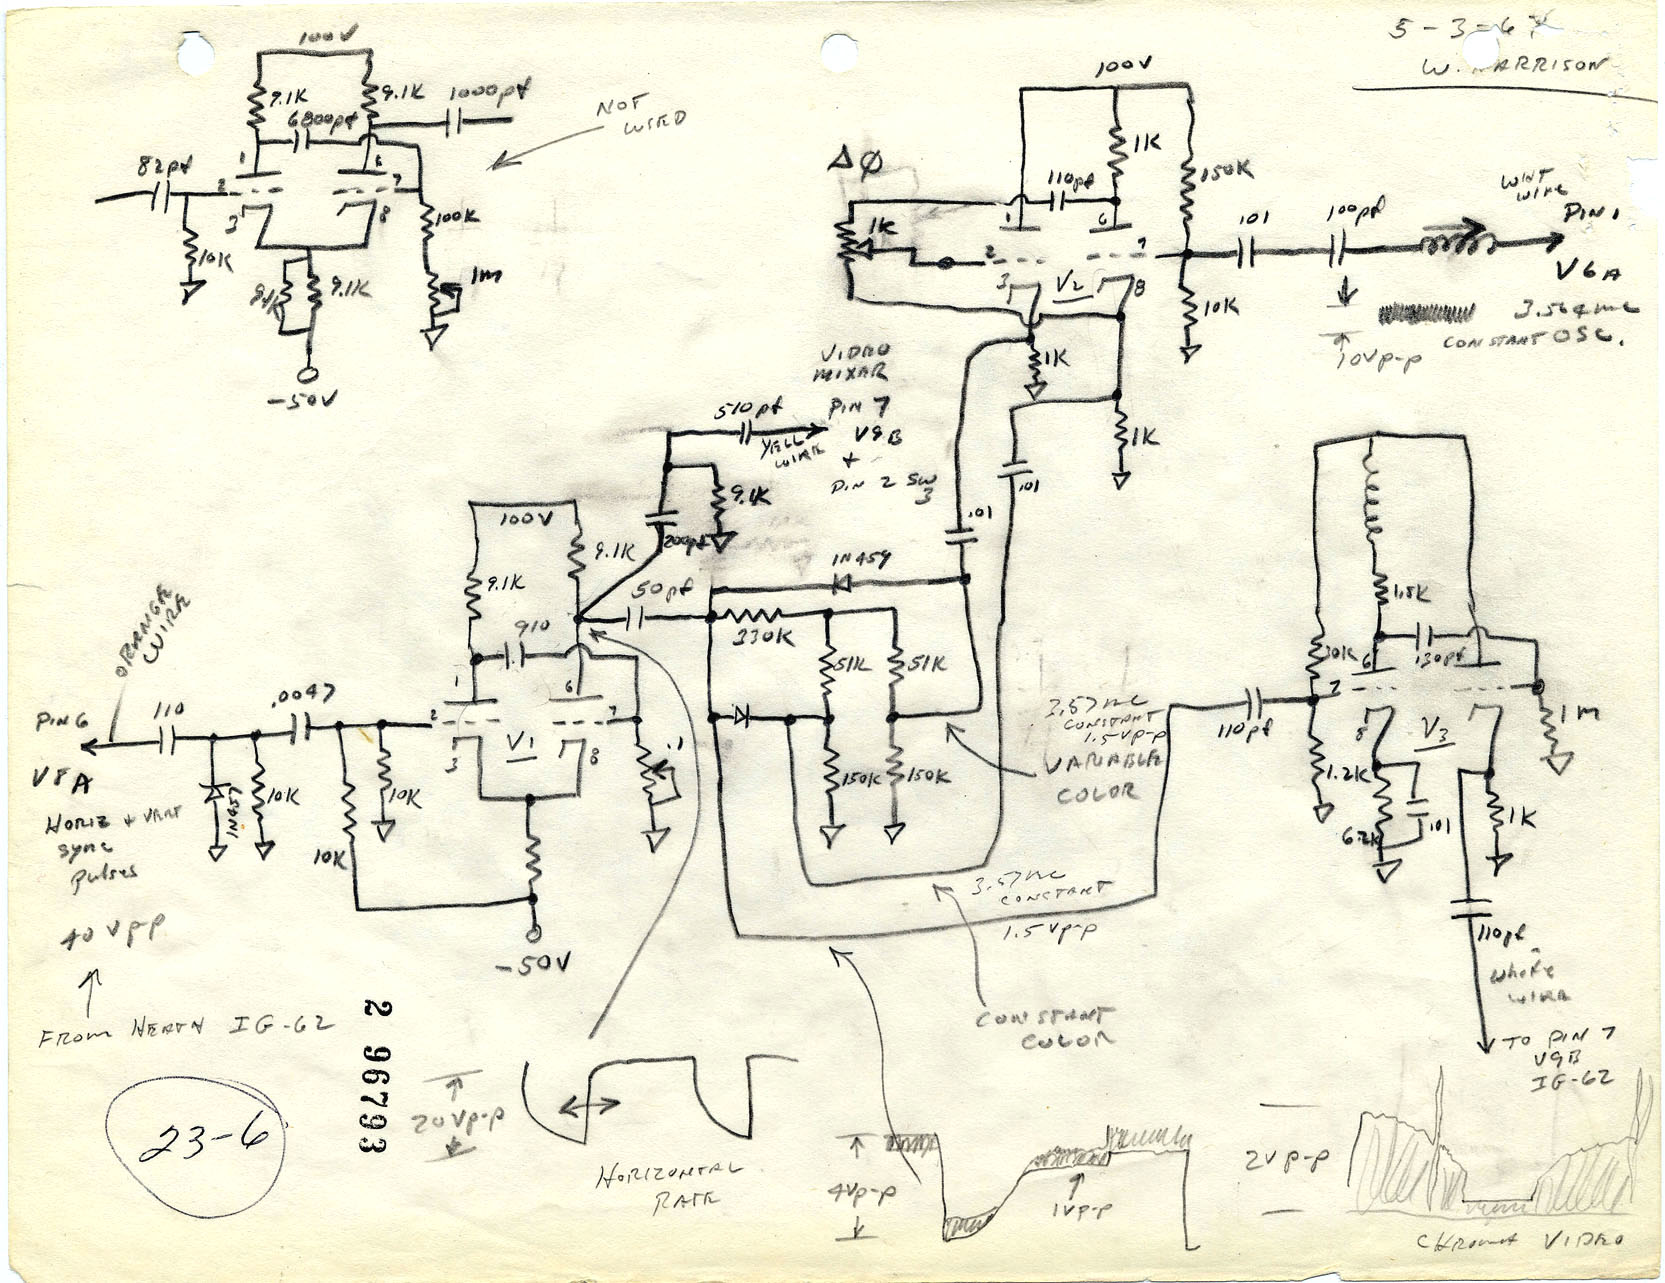 5-3-67
W. HARRISON
100V
9.1K
9.1K
1000pf
6800pf
NOT
USED
82pf
1
6
2
7
3
8
10K
100K
9.1K
9.1K
1M
-50V
100V
ΔØ
1K
110pf
150K
1K
1
6
2
7
3
V2
8
.01
100pf
WHT
WIRE
PIN 1
V6A
10K
1K
1K
3.564mc
CONSTANT OSC.
10Vp-p
VIDEO
MIXAR
PIN 7
V9B
+
PIN 2 SW
3
510pf
YELL
WIRE
9.1K
200pf
.01
.01
100V
9.1K
9.1K
910
50pf
1N459
330K
51K
51K
150K
150K
ORANGE
WIRE
PIN 6
V8A
110
.0047
1N457
10K
10K
10K
1
6
2
7
3
V1
8
.1
-50V
HORIZ + VERT
SYNC
pulses
40 Vp-p
FROM HEATH IG-62
3.57mc
CONSTANT
1.5Vp-p
VARIABLE
COLOR
3.57mc
CONSTANT
1.5Vp-p
CONSTANT
COLOR
1.5K
130pf
6
7
8
V3
110pf
1.2K
6.2K
.01
1M
1K
110pf
White
WIRE
TO PIN 7
V9B
IG-62
23-6
2 96793
20Vp-p
HORIZONTAL
RATE
4Vp-p
1Vp-p
2Vp-p
CHROMA VIDEO